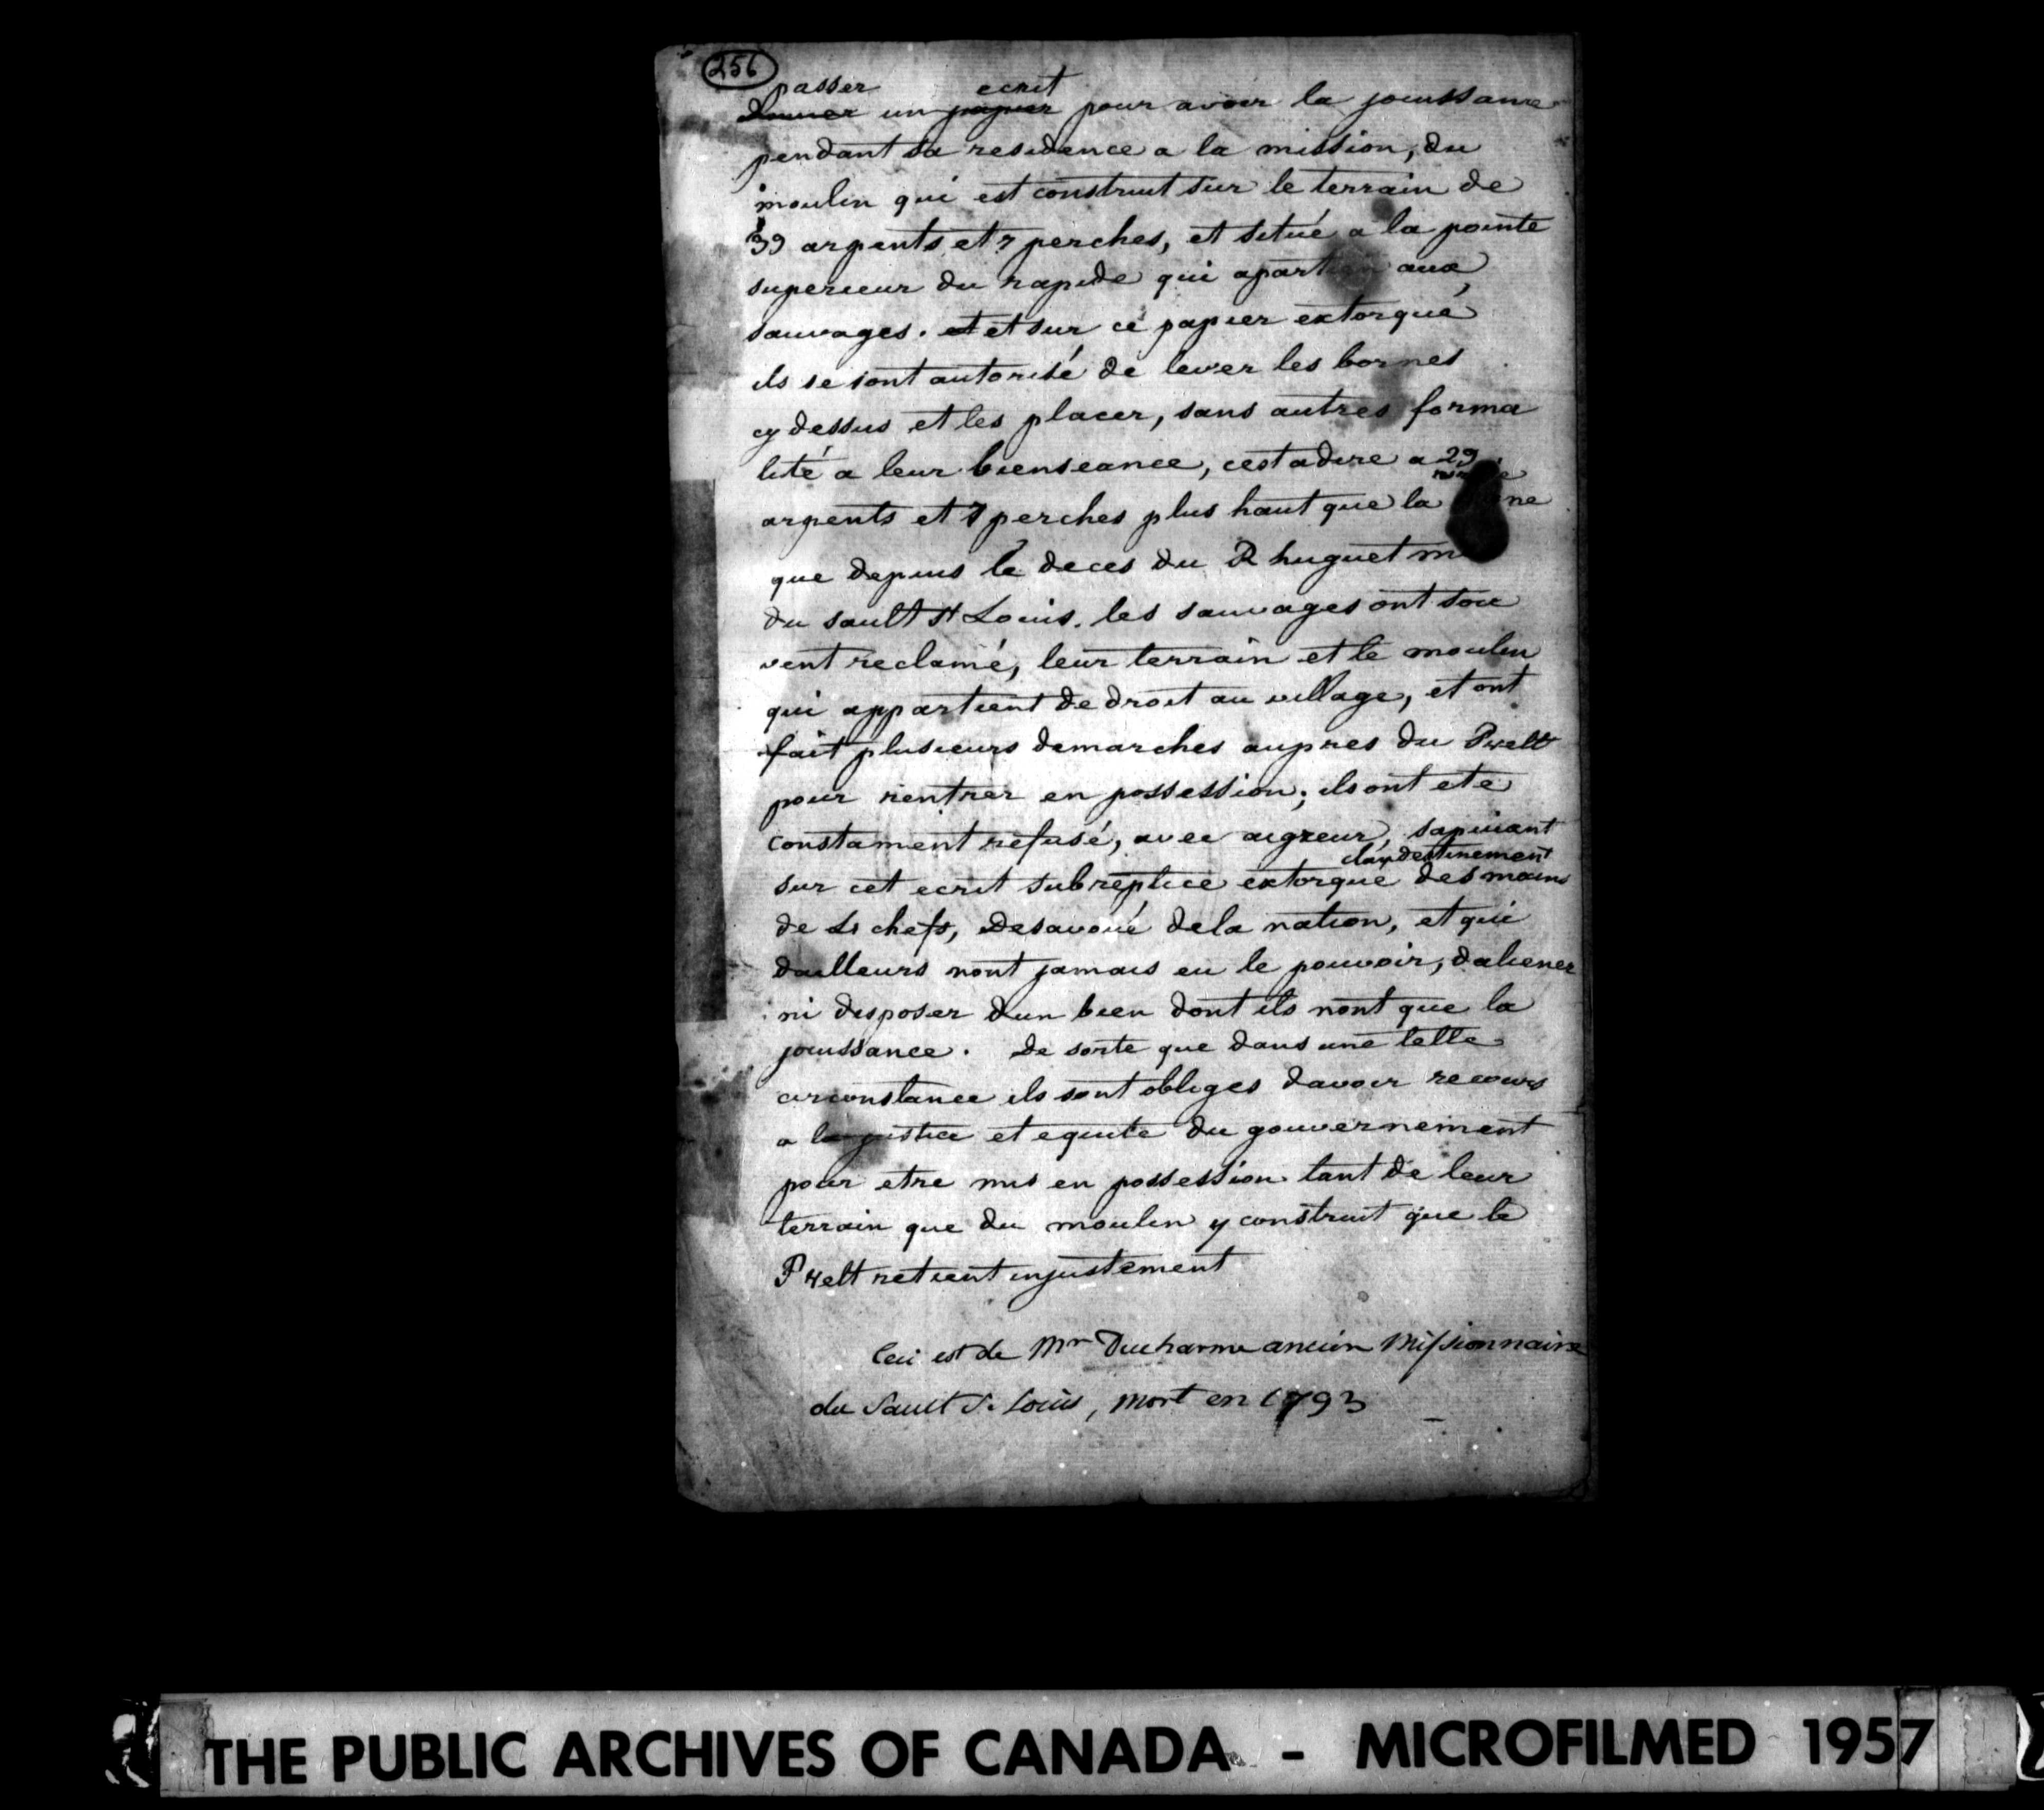 256
passer ecrit
donner un papier pour avoir la jouissance
pendant sa residence a la mission, du
moulin qui est construit sur le terrain de
39 argents et 7 perches, et situé a la pointe
superieur du rapide qui apartien aux
sauvages. et et sur ce papier extorqué
ils se sont autorisé de lever les bornes
cy dessus et les placer, sans autres forma
lité a leur bienseance, cest a dire a 29
argents et 7 perches plus haut que la
que depuis le deces du R huguet
du sault st Louis. les sauvages ont sou
vent reclamé, leur terrain et le moulin
qui appartient de droit au village, et ont
fait plusieurs demarches aupres du P welt
pour rentrer en possession; ils ont ete
constament refusé, avec aigreur, sapuiant
clandestinement
sur cet ecrit subreptice extorqué des mains
de chefs, desavoué de la nation, et qui
dailleurs nont jamais eu le pouvoir, daliener
ni disposer dun bien dont ils nont que la
jouissance. de sorte que dans une telle
circonstance ils sont obliges davoir recours
a la justice et equite du gouvernement
pour etre mis en possession tant de leur
terrain que du moulin y construit que le
P welt retient injustement
Ceci est de Mr Ducharme ancien Missionnaire
du Sault S. Louis, mort en 1793
THE PUBLIC ARCHIVES OF CANADA - MICROFILMED 1957